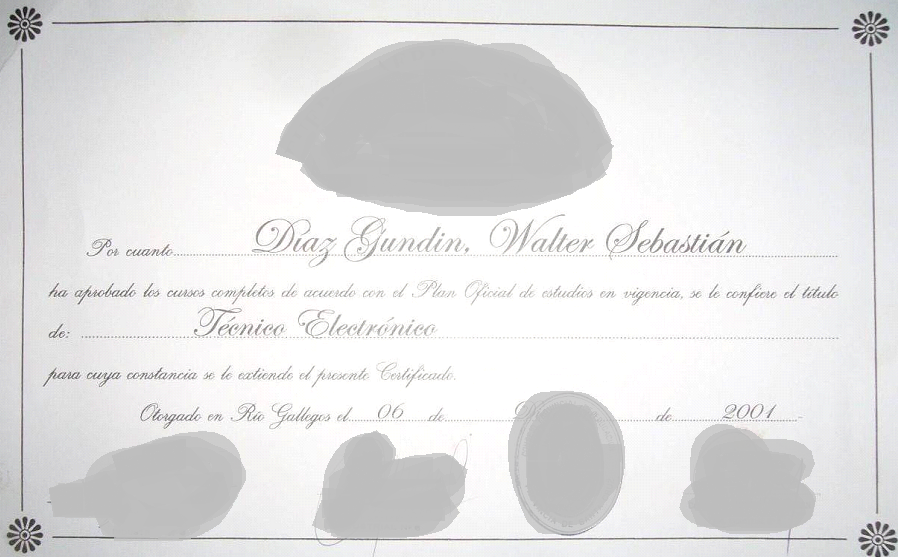 Por cuanto Díaz Gundin, Walter Sebastián
ha aprobado los cursos completos de acuerdo con el Plan Oficial de estudios en vigencia, se le confiere el título
de: Técnico Electrónico
para cuya constancia se le extiende el presente Certificado.
Otorgado en Río Gallegos el 06 de de 2001